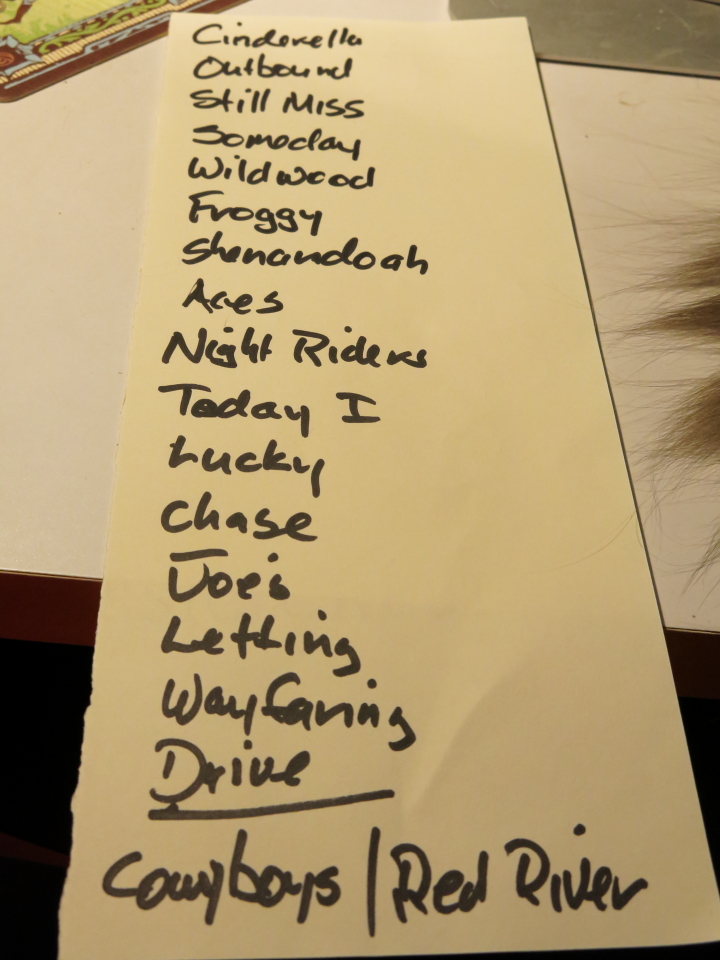 Cinderella
Outbound
Still Miss
Someday
Wildwood
Froggy
Shenandoah
Aces
Night Riders
Today I
Lucky
Chase
Joe's
Letting
Wayfaring
Drive
Cowboys | Red River